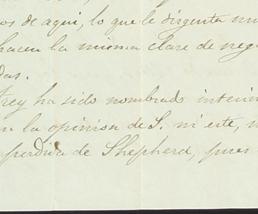 os de aquí, lo que le disgusta mu
hacen la misma clase de neg
das.
Frey ha sido nombrado interin
n la opinion de S. ni este, n
perdida de Shepherd, pues